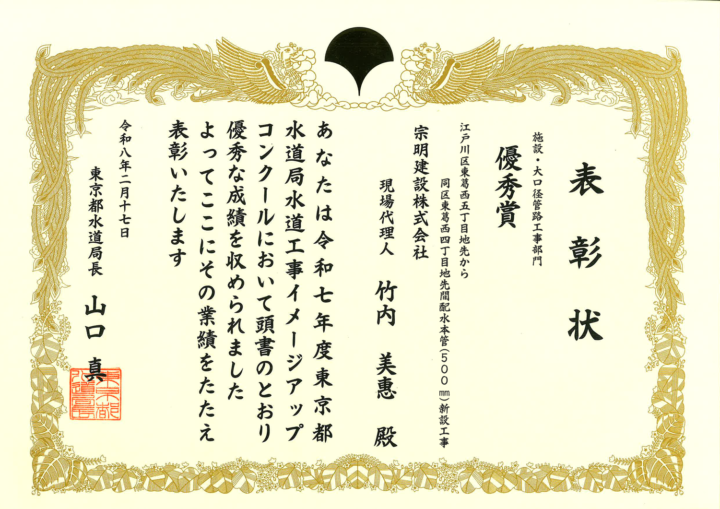 表彰状
施設・大口径管路工事部門
優秀賞
江戸川区東葛西五丁目地先から
同区東葛西四丁目地先間配水本管(500㎜)新設工事
宗明建設株式会社
現場代理人 竹内 美惠 殿
あなたは令和七年度東京都
水道局水道工事イメージアップ
コンクールにおいて頭書のとおり
優秀な成績を収められました
よってここにその業績をたたえ
表彰いたします
令和八年二月十七日
東京都水道局長 山口 真